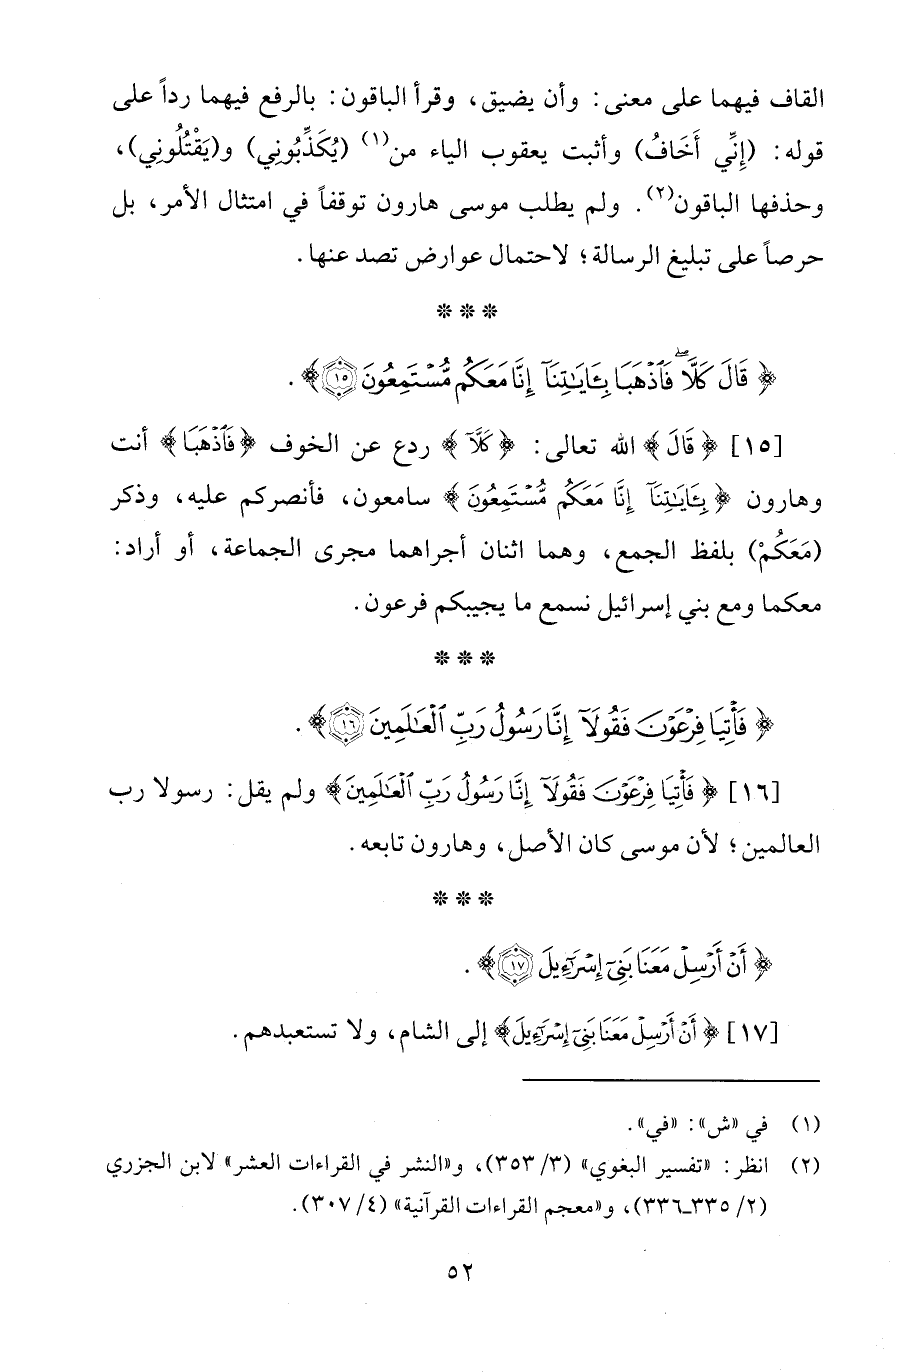 القاف فيهما على معنى: وأن يضيق، وقرأ الباقون: بالرفع فيهما رداً على
قوله: (إِنِّي أَخَافُ) وأثبت يعقوب الياء من(١) (يُكَذِّبُونِي) و(يَقْتُلُونِي)،
وحذفها الباقون(٢). ولم يطلب موسى هارون توقفاً في امتثال الأمر، بل
حرصاً على تبليغ الرسالة؛ لاحتمال عوارض تصد عنها.
* * *
﴿ قَالَ كَلَّاۖ فَٱذْهَبَا بِـَٔايَـٰتِنَآ إِنَّا مَعَكُم مُّسْتَمِعُونَ ١٥ ﴾ .
[١٥] ﴿ قَالَ ﴾ الله تعالى: ﴿ كَلَّآ ﴾ ردع عن الخوف ﴿ فَٱذْهَبَا ﴾ أنت
وهارون ﴿ بِـَٔايَـٰتِنَآ إِنَّا مَعَكُم مُّسْتَمِعُونَ ﴾ سامعون، فأنصركم عليه، وذكر
(مَعَكُمْ) بلفظ الجمع، وهما اثنان أجراهما مجرى الجماعة، أو أراد:
معكما ومع بني إسرائيل نسمع ما يجيبكم فرعون.
* * *
﴿ فَأْتِيَا فِرْعَوْنَ فَقُولَآ إِنَّا رَسُولُ رَبِّ ٱلْعَـٰلَمِينَ ١٦ ﴾ .
[١٦] ﴿ فَأْتِيَا فِرْعَوْنَ فَقُولَآ إِنَّا رَسُولُ رَبِّ ٱلْعَـٰلَمِينَ ﴾ ولم يقل: رسولا رب
العالمين؛ لأن موسى كان الأصل، وهارون تابعه.
* * *
﴿ أَنْ أَرْسِلْ مَعَنَا بَنِىٓ إِسْرَٰٓءِيلَ ١٧ ﴾ .
[١٧] ﴿ أَنْ أَرْسِلْ مَعَنَا بَنِىٓ إِسْرَٰٓءِيلَ ﴾ إلى الشام، ولا تستعبدهم.
(١) في «ش»: «في».
(٢) انظر: «تفسير البغوي» (٣/ ٣٥٣)، و«النشر في القراءات العشر» لابن الجزري
(٢/ ٣٣٥ـ٣٣٦)، و«معجم القراءات القرآنية» (٤/ ٣٠٧).
٥٢